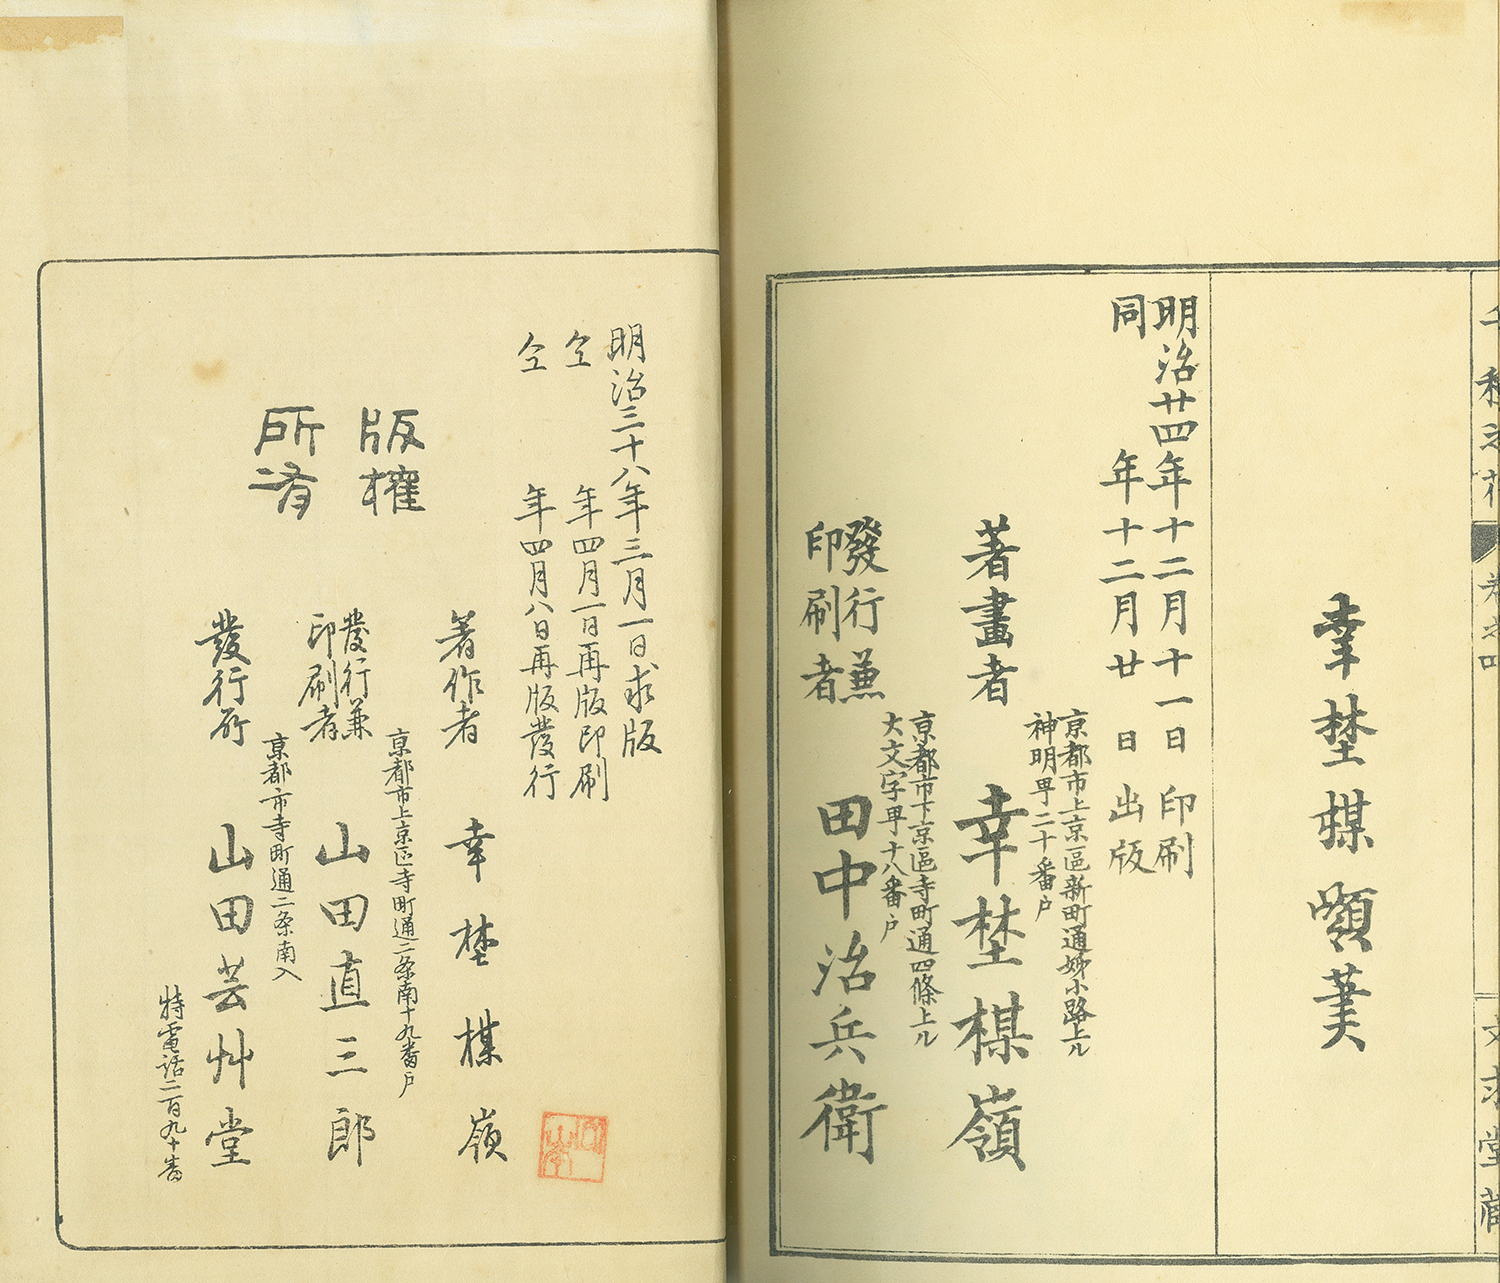 千種之花
卷之四
文求堂藏
幸埜楳嶺筆
明治廿四年十二月十一日印刷
同年十二月廿日出版
京都市上京區新町通姊小路上ル
神明町二十番戶
著畫者 幸埜楳嶺
京都市下京區寺町通四條上ル
大文字町十八番戶
發行兼
印刷者
田中治兵衛
明治三十八年三月一日求版
仝年四月一日再版印刷
仝年四月八日再版發行
版權
所有
著作者 幸埜楳嶺
京都市上京區寺町通二条南十九番戶
發行兼
印刷者
山田直三郎
京都市寺町通二条南入
發行所 山田芸艸堂
特電話二百九十番